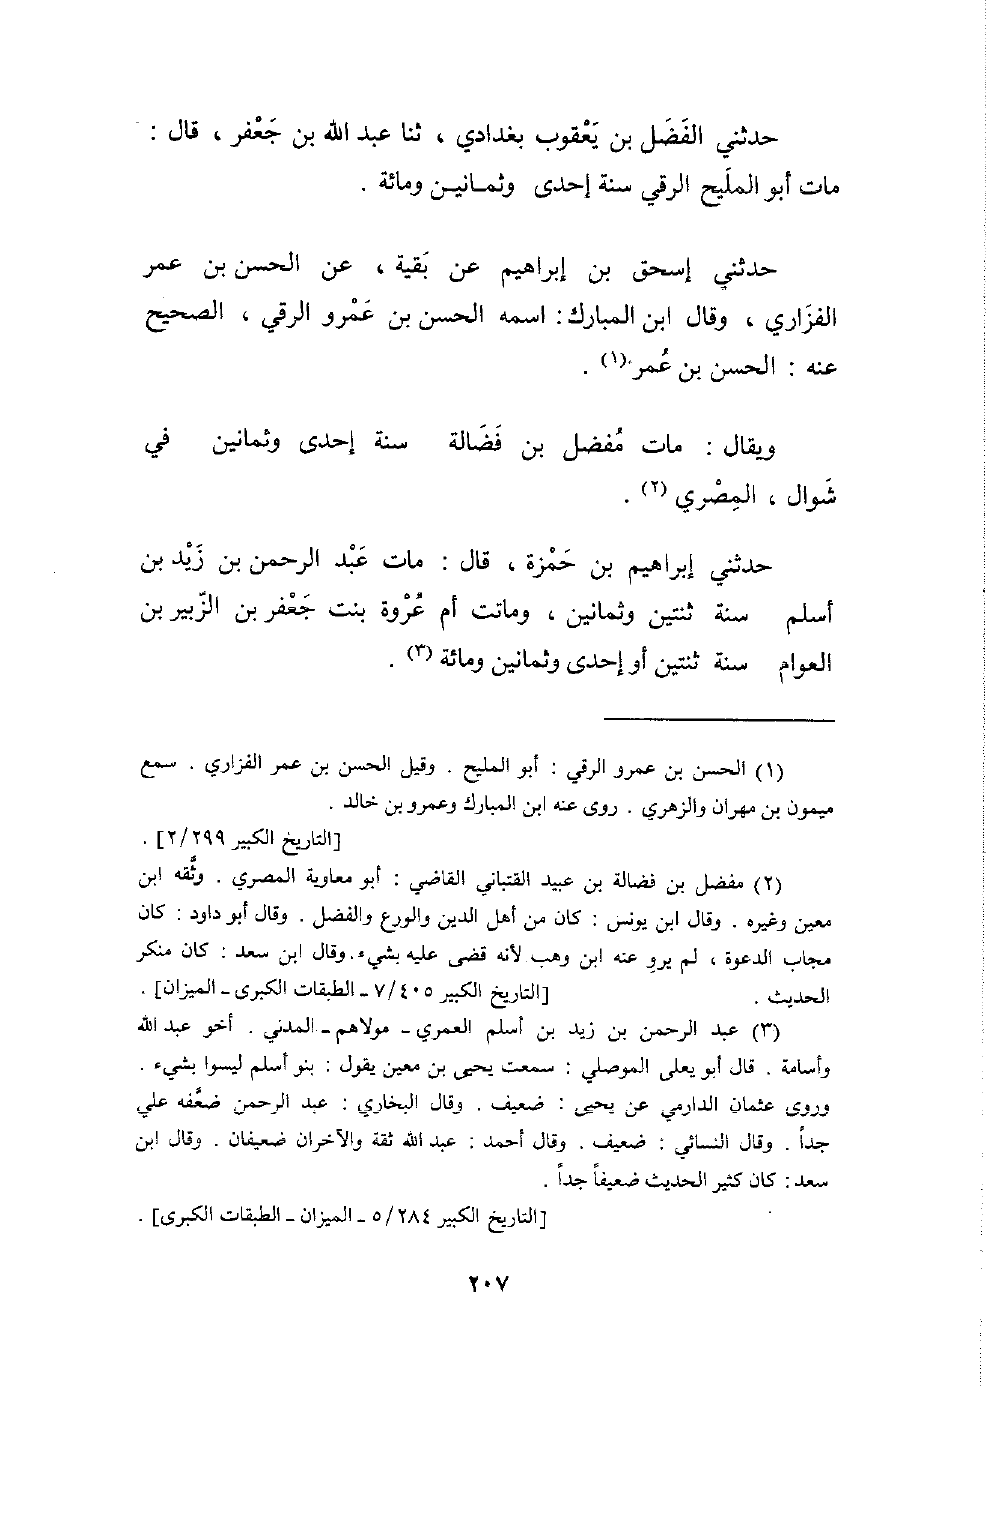 حدثني الفَضَل بن يَعْقوب بغدادي ، ثنا عبد الله بن جَعْفر ، قال :
مات أبو الملَيح الرقي سنة إحدى وثمـانيـن ومائة .
حدثني إسحق بن إبراهيم عن بَقية ، عن الحسن بن عمر
الفزَاري ، وقال ابن المبارك : اسمه الحسن بن عَمْرو الرقي ، الصحيح
عنه : الحسن بن عُمر (١) .
ويقال : مات مُفضل بن فَضَالة سنة إحدى وثمانين في
شَوال ، المِصْري (٢) .
حدثني إبراهيم بن حَمْزة ، قال : مات عَبْد الرحمن بن زَيْد بن
أسلم سنة ثنتين وثمانين ، وماتت أم عُرْوة بنت جَعْفر بن الزّبير بن
العوام سنة ثنتين أو إحدى وثمانين ومائة (٣) .
(١) الحسن بن عمرو الرقي : أبو المليح . وقيل الحسن بن عمر الفزاري . سمع
ميمون بن مهران والزهري . روى عنه ابن المبارك وعمرو بن خالد .
[التاريخ الكبير ٢/٢٩٩] .
(٢) مفضل بن فضالة بن عبيد القتباني القاضي : أبو معاوية المصري . وثَّقه ابن
معين وغيره . وقال ابن يونس : كان من أهل الدين والورع والفضل . وقال أبو داود : كان
مجاب الدعوة ، لم يروِ عنه ابن وهب لأنه قضى عليه بشيء . وقال ابن سعد : كان منكر
الحديث . [التاريخ الكبير ٧/٤٠٥ ـ الطبقات الكبرى ـ الميزان] .
(٣) عبد الرحمن بن زيد بن أسلم العمري ـ مولاهم ـ المدني . أخو عبد الله
وأسامة . قال أبو يعلى الموصلي : سمعت يحيى بن معين يقول : بنو أسلم ليسوا بشيء .
وروى عثمان الدارمي عن يحيى : ضعيف . وقال البخاري : عبد الرحمن ضعَّفه علي
جداً . وقال النسائي : ضعيف . وقال أحمد : عبد الله ثقة والآخران ضعيفان . وقال ابن
سعد : كان كثير الحديث ضعيفاً جداً .
[التاريخ الكبير ٥/٢٨٤ ـ الميزان ـ الطبقات الكبرى] .
٢٠٧